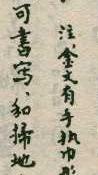 注:金文有手执巾形
可書写、和掃地